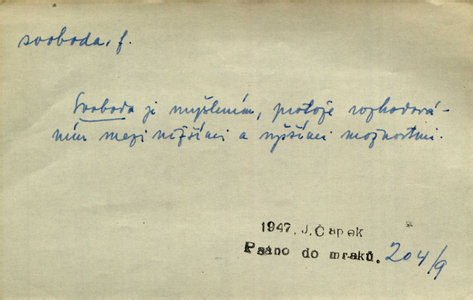 svoboda, f.
Svoboda je myšlením, protože rozhodová-
ním mezi nižšími a vyššími možnostmi.
1947, J. Čapek
Psáno do mraků. 204/9